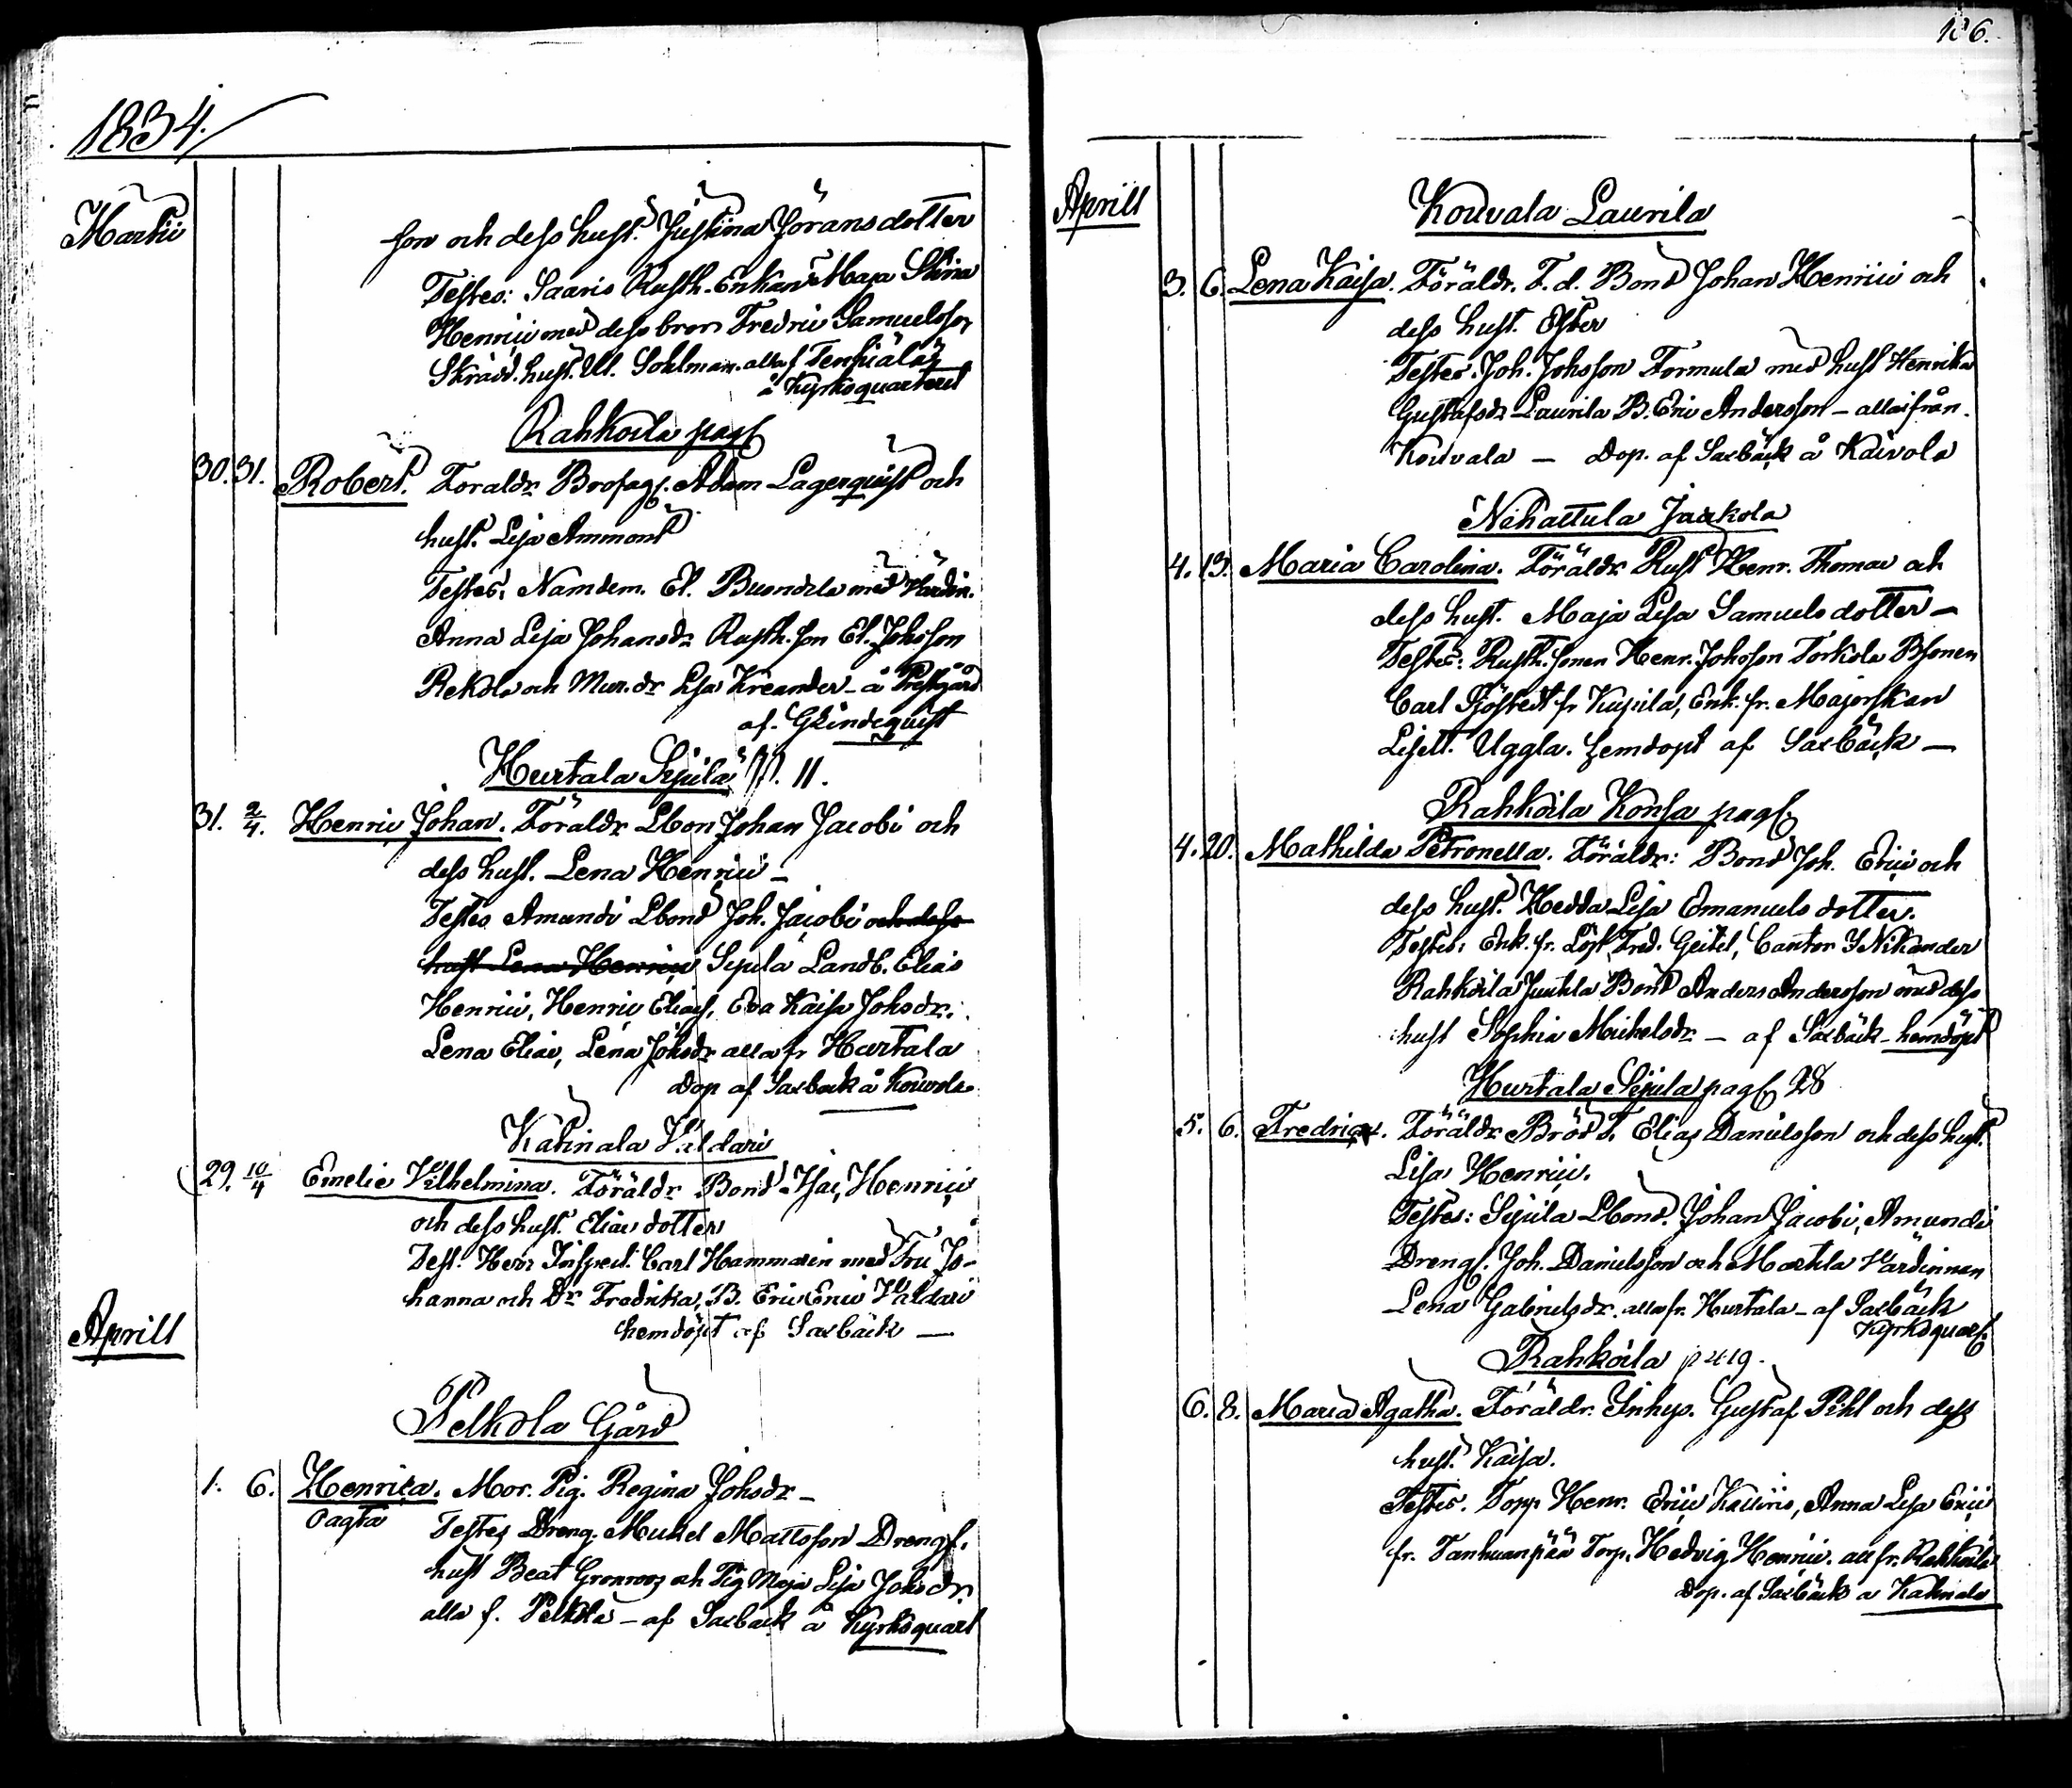 1834.
Martii
son och dess hust. Justina Göransdotter
Testes: Saaris Rusth. Enkan Maja Stina
Henrici med dess bror Fredric Samuelsson
Skrädd. hust. Ul. Sohlman. alla f
å Kyrkoquarteret
Rahkoila pag
30. 31. Robert. Föräldr. Adam Lagerquist och
hust. Lisa Ammont
Testes: Nämdem. El. med Värdin.
Anna Lisa Johansdr Rusth. son El. Johsson
Rekola och Mur. dr Lisa Kreander - å Prestgård
af. GLindequist
Hurtala Sipilä 11.
31. 2/4. Henric Johan. Föräldr Lbon Johan Jacobi och
dess hust. Lena Henrici -
Testes Amundi Lbond Joh. Jacobi och dess
hust Lena Henrici Sipilä Landb. Elias
Henrici, Henric Elias, Eva Kaisa Johsdr.
Lena Eliae, Lena Johsdr alla fr Hurtala
Dop af Saxbäck å Kouvola
Katinala Valdari
29. 10/4 Emelie Vilhelmina. Föräldr Bond Isac Henrici
och dess hust. Eliae dotter
Test: Herr Inspect. Carl Hammarén med Fru Jo-
hanna och Dr Fredrika, B. Eric Erici Valdari
hemdöpt af Saxbäck -
Aprill
Pelkola Gård
1. 6. Henrica. Mor. Pig. Regina Johsdr -
oagta
Testes Dreng. Michel Mattsson Drengs.
hust Beat Grönroos och Pig Maja Lisa Johsdr
alla f. Pelkola - af Saxbäck å Kyrkoquart
126.
Aprill
Kouvala Laurila
3. 6. Lena Kaisa. Föräldr. F. d. Bond Johan Henrici och
dess hust. Ester
Testes. Joh. Johsson Tormula med hust Henrika
Gustafsdr Laurila B. Eric Andersson - alla ifrån
Kouvala - Dop. af Saxbäck å Kaivola
Nihattula Jaakola
4. 13. Maria Carolina. Föräldr Rust Henr. Thomae och
dess hust. Maja Lisa Samuels dotter -
Testes: Rusth. sonen Henr. Johsson Torkola Bsonen
Carl Sjöstedt fr Kupila, Enk. fr. Majorskan
Lisett. Uggla. hemdöpt af Saxbäck -
Rahkoila Konsa pag
4. 20. Mathilda Petronella. Föräldr: Bond Joh. Erici och
dess hust. Hedda Lisa Emanuels dotter.
Testes: Enk. fr. Löjt. Fred. Geitel, Cantor Nikander
Rahkoila Juutila Bond Anders Andersson med dess
hust Sophia Michelsdr - af Saxbäck - hemdöpt
Hurtala Sipilä pag 28
5. 6. Fredric. Föräldr Elias Danielsson och dess hust.
Lisa Henrici.
Testes: Sipilä Lbond. Johan Jacobi, Amundi
Drengs. Joh. Danielsson och Martila Värdinnan
Lena Gabrielsdr. alla fr. Hurtala - af Saxbäck
Kyrkoquart
Rahkoila p 419.
6. 8. Maria Agatha. Föräldr. Inhys. Gustaf Pihl och dess
hust. Kaisa.
Testes. Torp Henr. Erici Anna Lisa Erici
fr. Tanhuanpää Torp. Hedvig Henrici. all fr. Rahkoila
Dop. af Saxbäck å Katinala